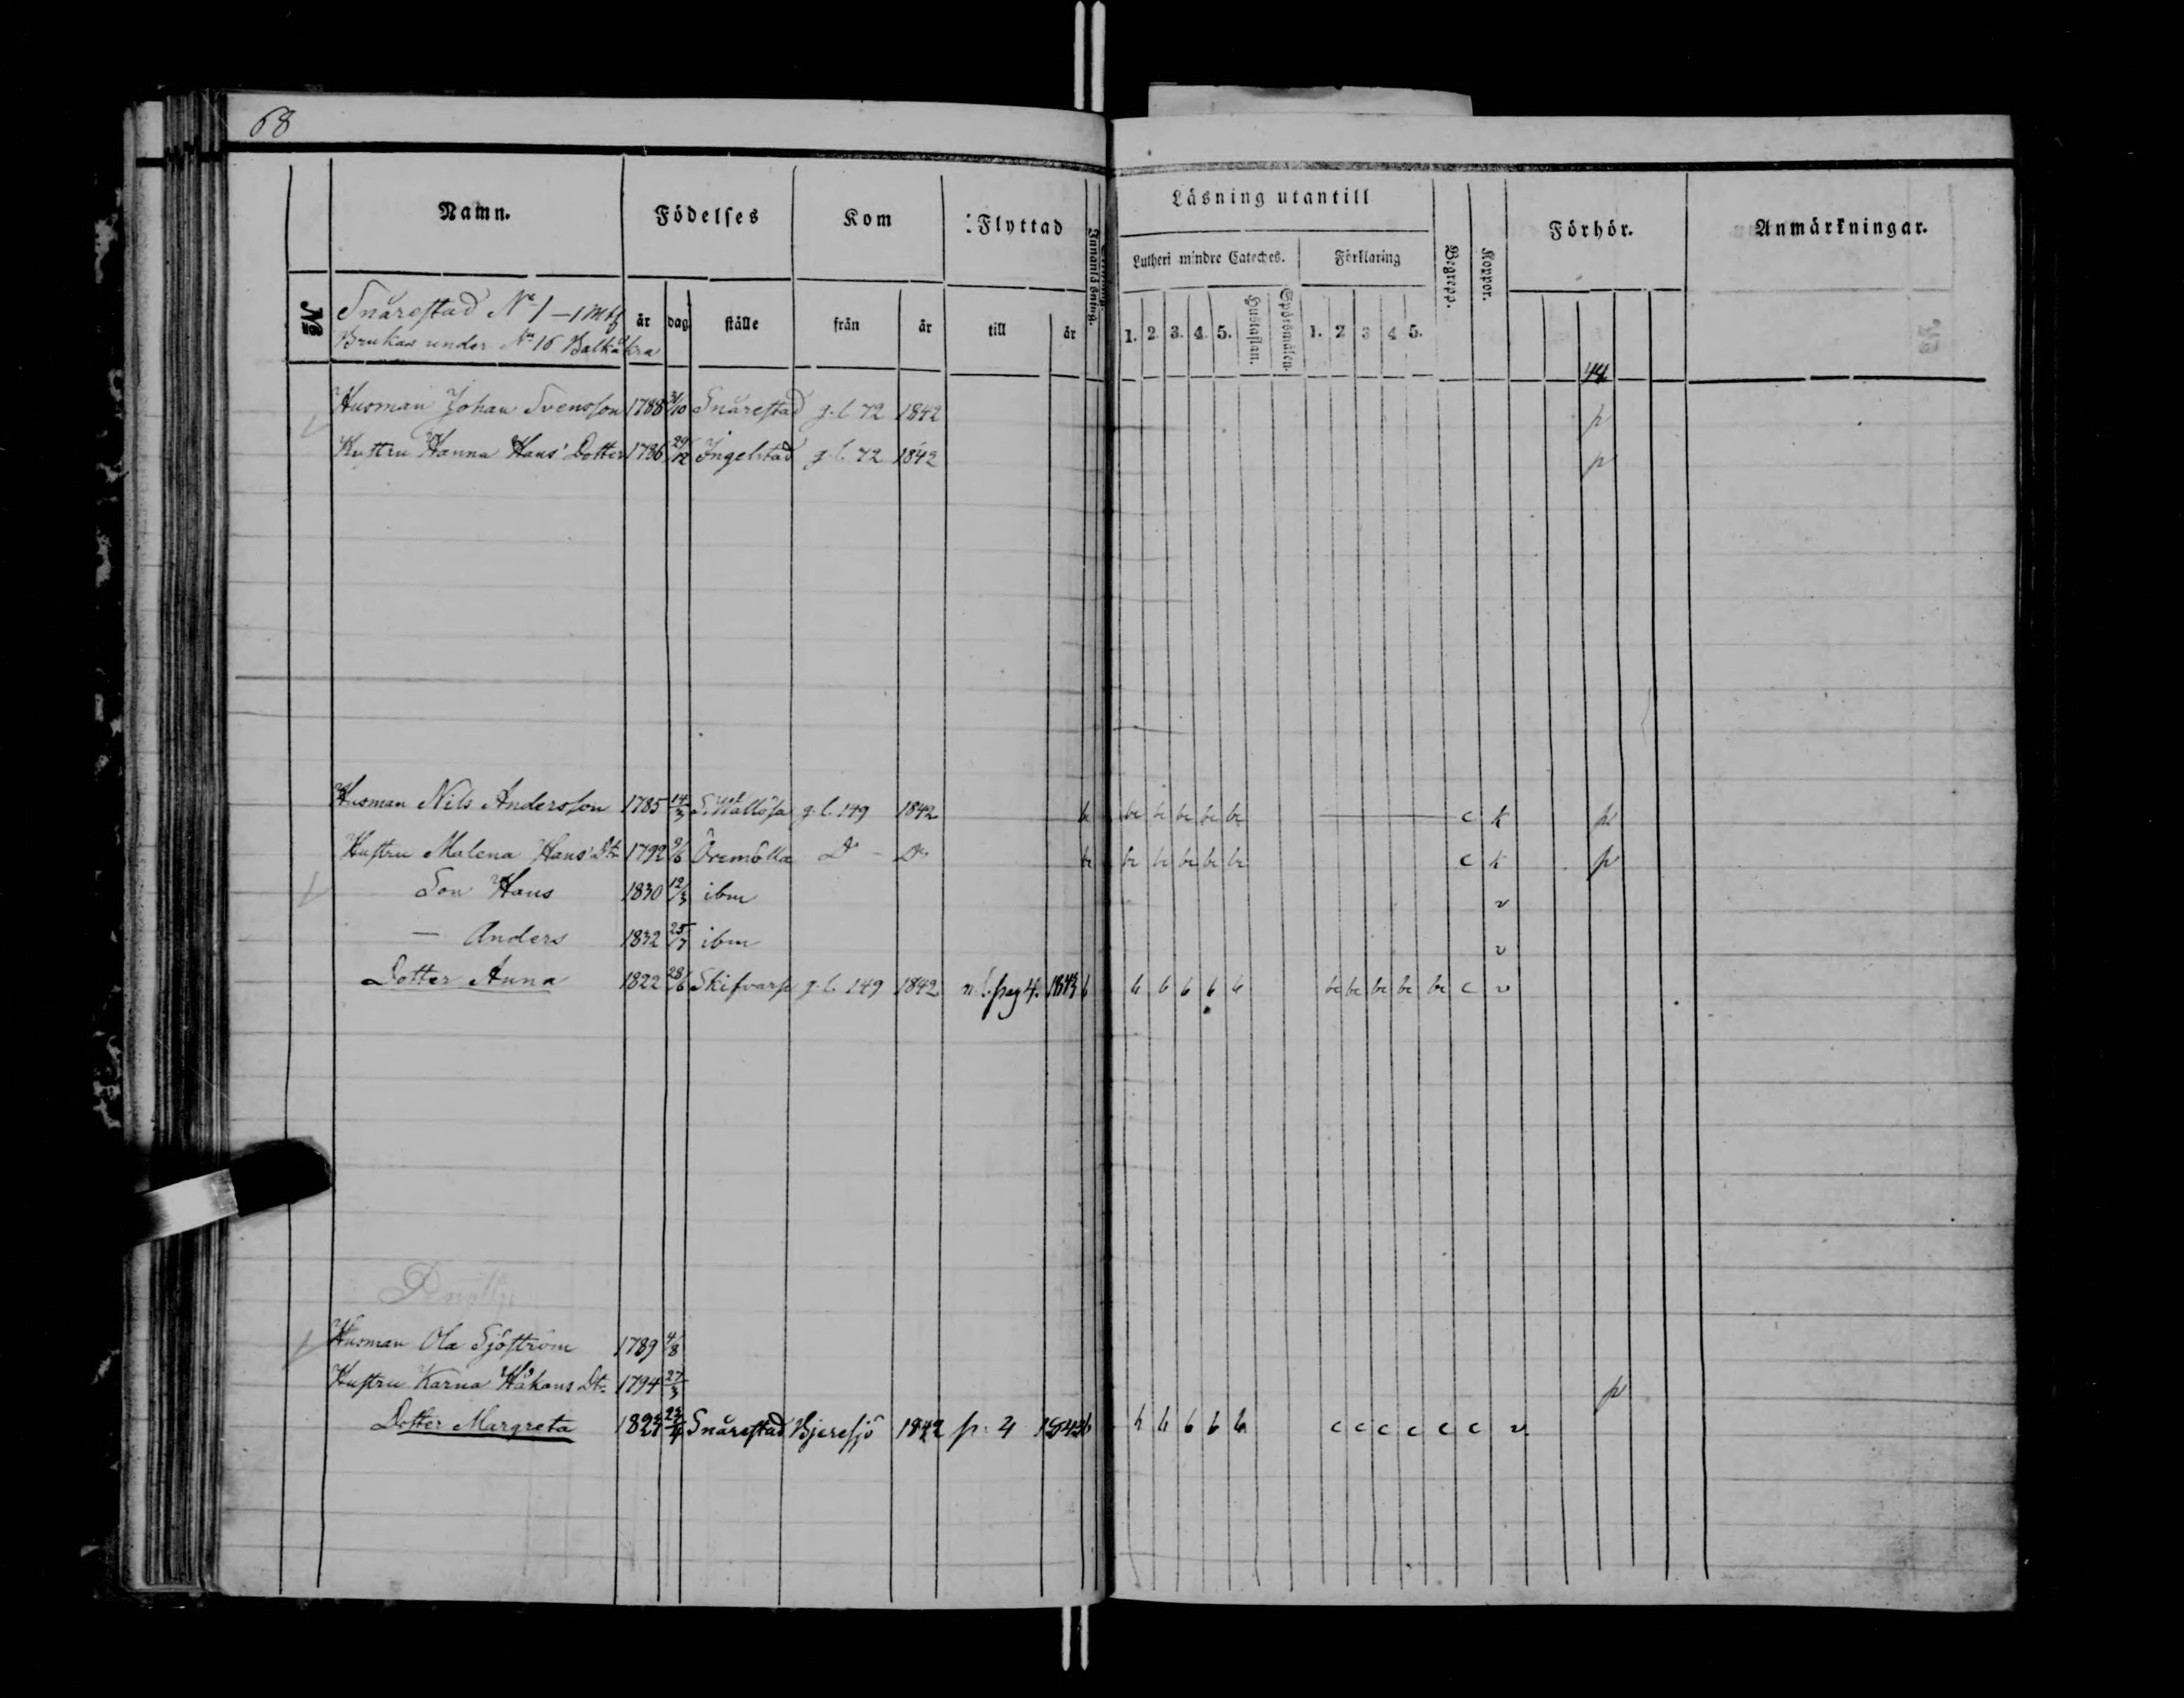 68
Namn. Födelses Kom Flyttad Läsning utantill Begrepp. Koppor. Förhör. Anmärkningar.
Innanläsning. Lutheri mindre Cateches. Förklaring
№ Snårestad No 1 – 1 Mtl år dag ställe från år till år 1. 2. 3. 4. 5. Hustaflan. Spörsmålen. 1. 2 3 4 5.
Brukas under No 16 Balkåkra
44
Husman Johan Svensson 1788 /10 Snårestad g.l. 72 1842 p
Hustru Hanna Hans' Dotter 1786 29/12 Ingelstad g.l. 72 1842 p
Husman Nils Andersson 1785 14/3 g.l. 149 1842 b be b be be be c k p
Hustru Malena Hans' Dtr 1792 9/6 Öremölla Do – Do be be b be be be c k p
Son Hans 1830 12/3 ibm v
— Anders 1832 25/7 ibm v
Dotter Anna 1822 28/6 Skifvarp g.l. 149 1842 n.l. pag 4. 1843 b b b b b b be be be be be c v
Husman Ola Sjöström 1789 4/8
Hustru Karna Håkans Dtr 1794 27/3 p
Dotter Margreta 1824 Snårestad Bjeresjö 1842 p. 4 1843 b b b b b b c c c c c c v